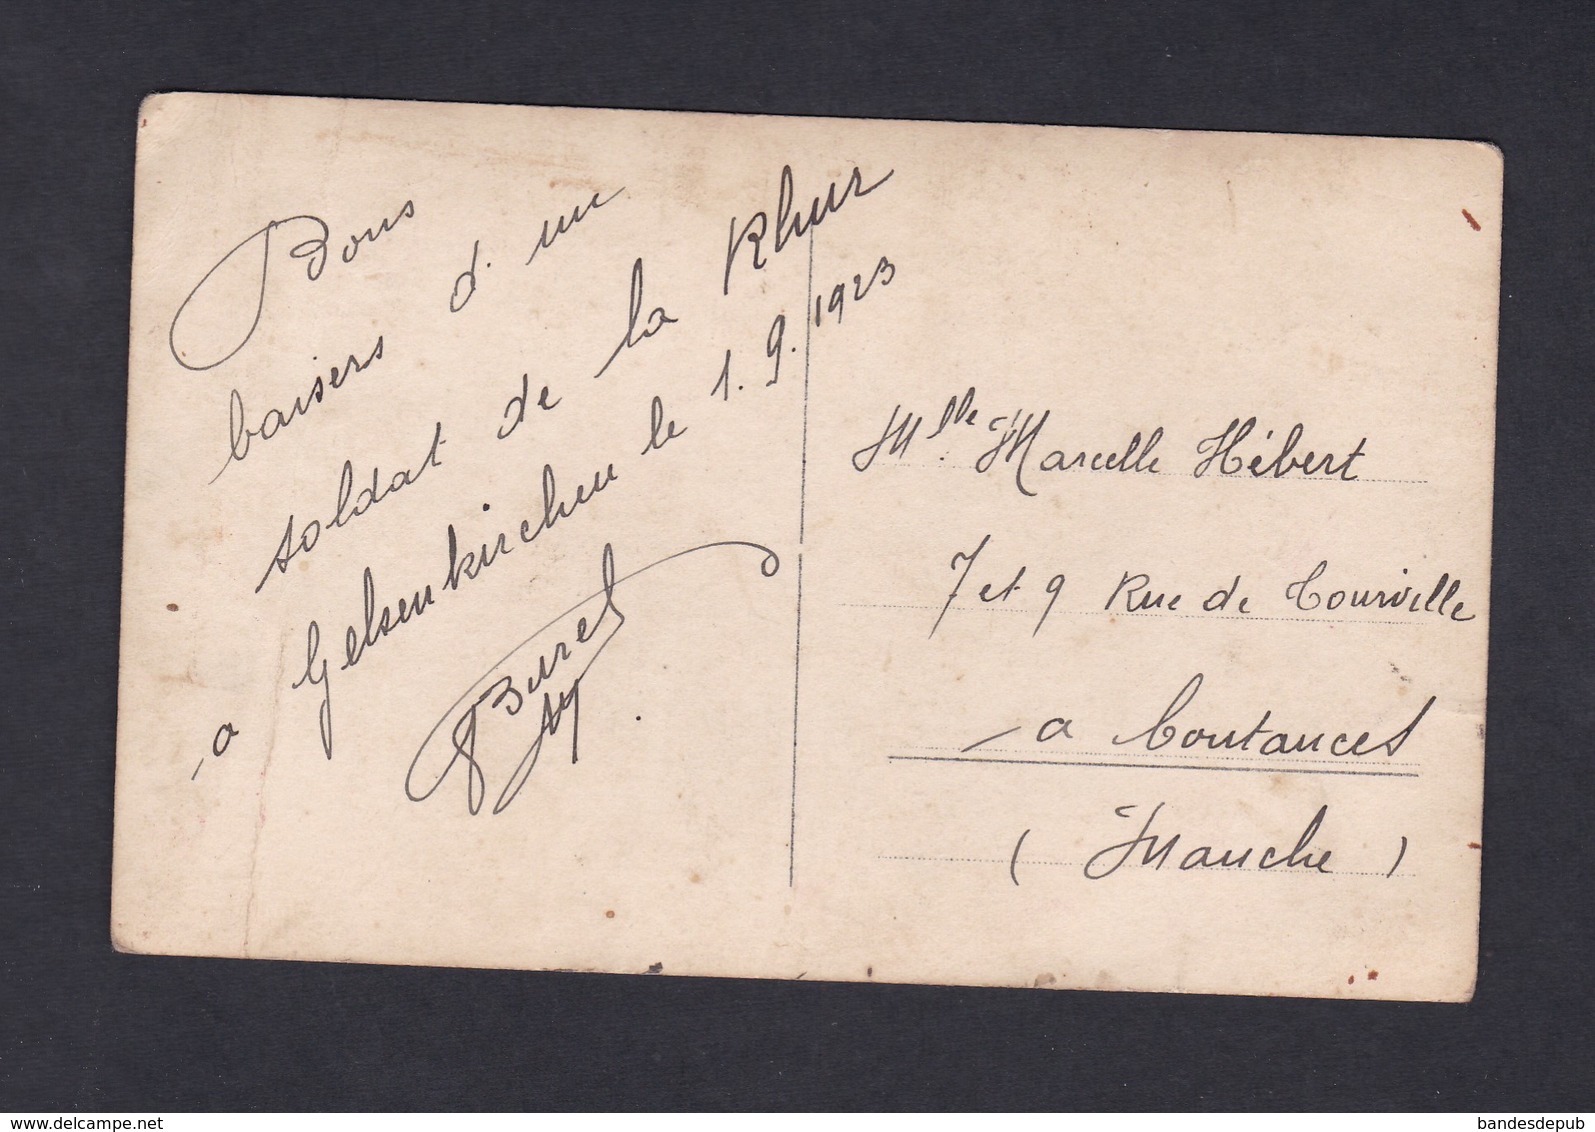 Bons
baisers d'un
soldat de la Rhur
-a Gelsenkirchen le 1.9.1923
Burel
Mlle Marcelle Hébert
7 et 9 Rue de Tourville
-a Coutances
(Manche)
www.delcampe.net
bandesdepub